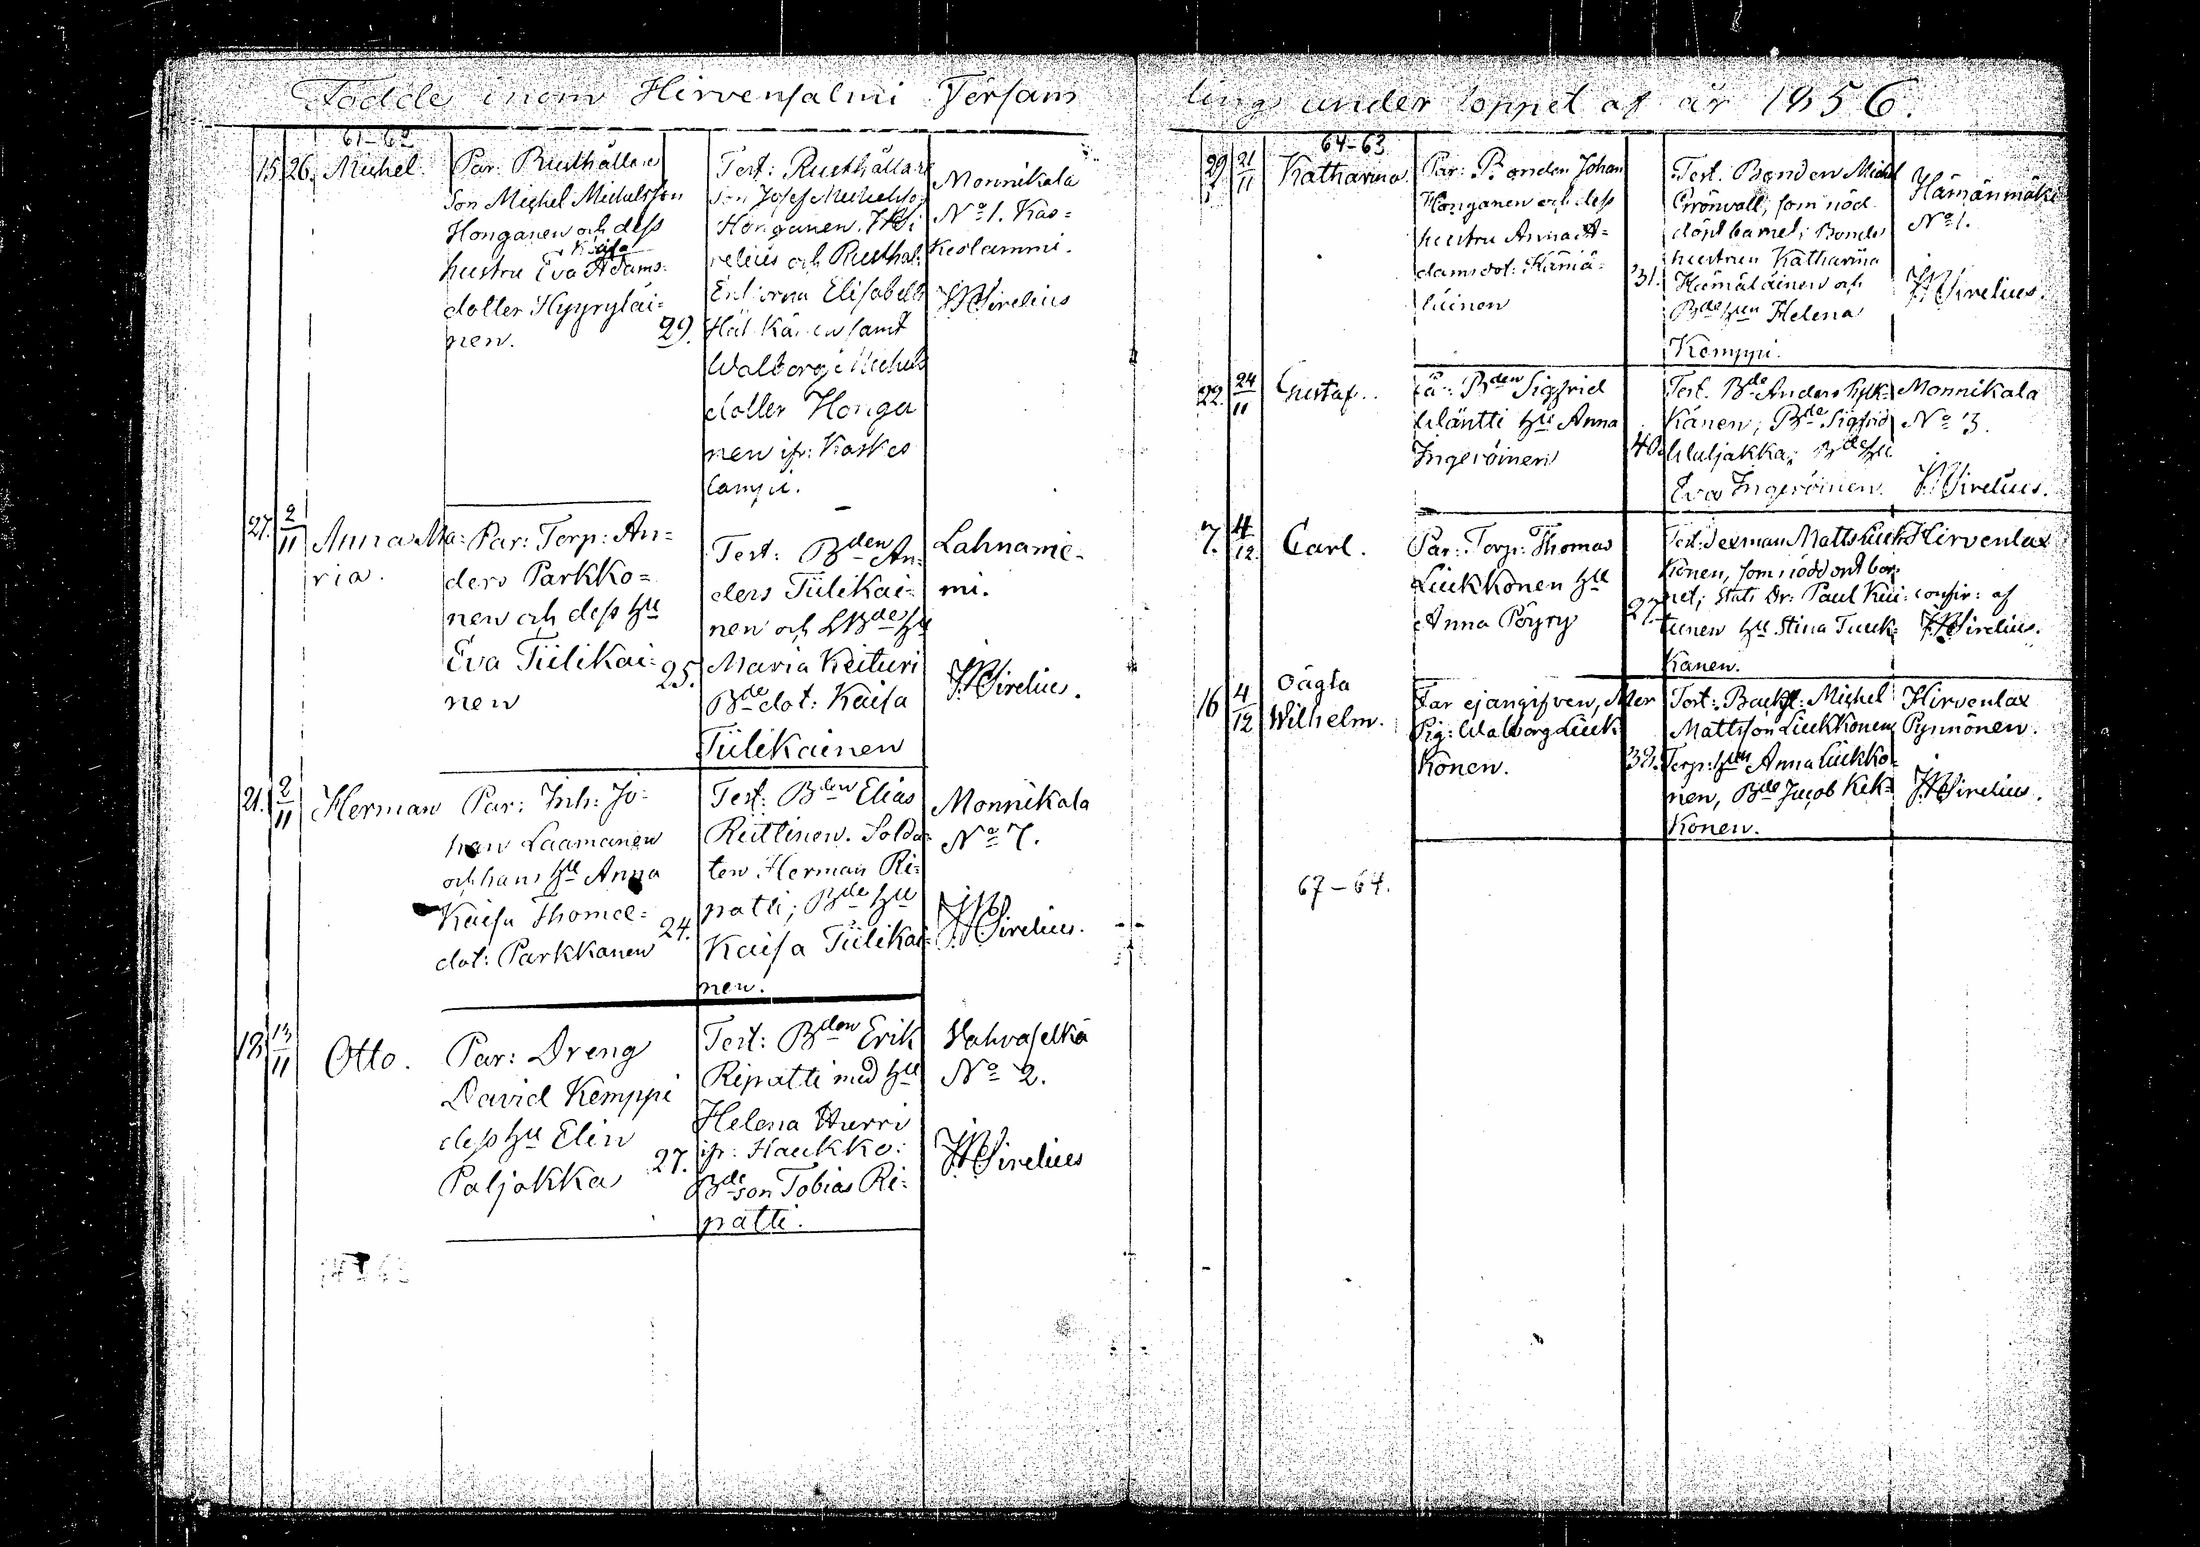 Födde inom Hirvensalmi Försam
ling under loppet af år 1856.
61-62
15 26. Michel.
Par: Rusthållare
son Michel Michelsson
Honganen och dess
Kaisa
hustru Eva Adams-
dotter Hyyryläi=
nen.
29.
Test: Rusthållare
son Josef Michelsso
Honganen,
relius och Rusthål:
Enkorna Elisabeth
samt
Walborg Michels
dotter Honga
nen ifr: Koskes
lampi.
Monnikala
No 1. Kas=
keslammi.
Sirelius
27. 2/11 Anna Ma=
ria.
Par: Torp: An=
ders Parkko=
nen och dess Hu
Eva Tiilikai=
nen
25.
Test: Bden An=
ders Tiilikai=
nen och Bde Hu
Maria Keituri
Bde dot: Kaisa
Tiilikainen
Lahnanie-
mi.
Sirelius.
21. 2/11 Herman
Par: Inh: Jo-
han Laamanen
och hans Hu Anna
Kaisa Thomæ=
dot: Parkkonen
24.
Test: Bden Elias
Reittinen. Solda=
ten Herman Ri=
patti; Bde Hu
Kaisa Tiilikai=
nen.
Monnikala
No 7.
Sirelius.
18 13/11 Otto.
Par: Dreng
David Kemppi
dess Hu Elin
Paljakka
27.
Test: Bden Erik
Ripatti med Hu
Helena Hurri
ifr: Haukko:
Bde son Tobias Ri-
patti.
Vahvaselkä
No 2.
Sirelius
64-63
29 21/11 Katharina.
Par: Bonden Johan
Honganen och dess
hustru Anna A=
damsdot: Hämä-
läinen
31.
Test. Bonden Michel
Grönvall, som nöd
döpt barnet; Bonde
hustrun Katharina
Hämäläinen och
Bde Hun Helena
Kemppi.
Hämänmäki
No 1.
Sirelius.
22. 24/11 Gustaf.
Bden Sigfrid
Wäntti Hu Anna
Ingeröinen
40.
Test. Bde Anders Pylk=
känen, Bde Sigfrid
Wuljakka; Bde Hu
Eva Ingeröinen.
Monnikala
No 3.
Sirelius.
7. 4/12 Carl.
Par: Torp: Thomas
Liukkonen Hu
Anna Pöyry
27.
Test: Sexman Matts Liuk
konen, som nöddöpt bar
net; Stats Dr: Paul Kui:
tunen Hu Stina Tuuk=
kanen.
Hirvenlax
confir: af
Sirelius.
16 4/12 Oägta
Wilhelm.
Far ej angifven, Moder
Pig: Walborg Liuk
konen.
38.
Test: Michel
Mattsson Liukkonen,
Torp: Hun Anna Liukko=
nen, Bde Jacob Kek=
konen.
Hirvenlax
Pynnönen.
Sirelius.
67-64.